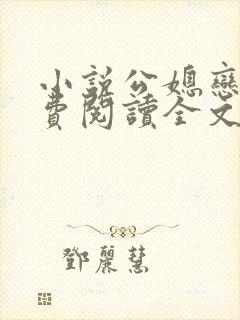 小說公媳戀
費閱讀全文
鄧麗慧